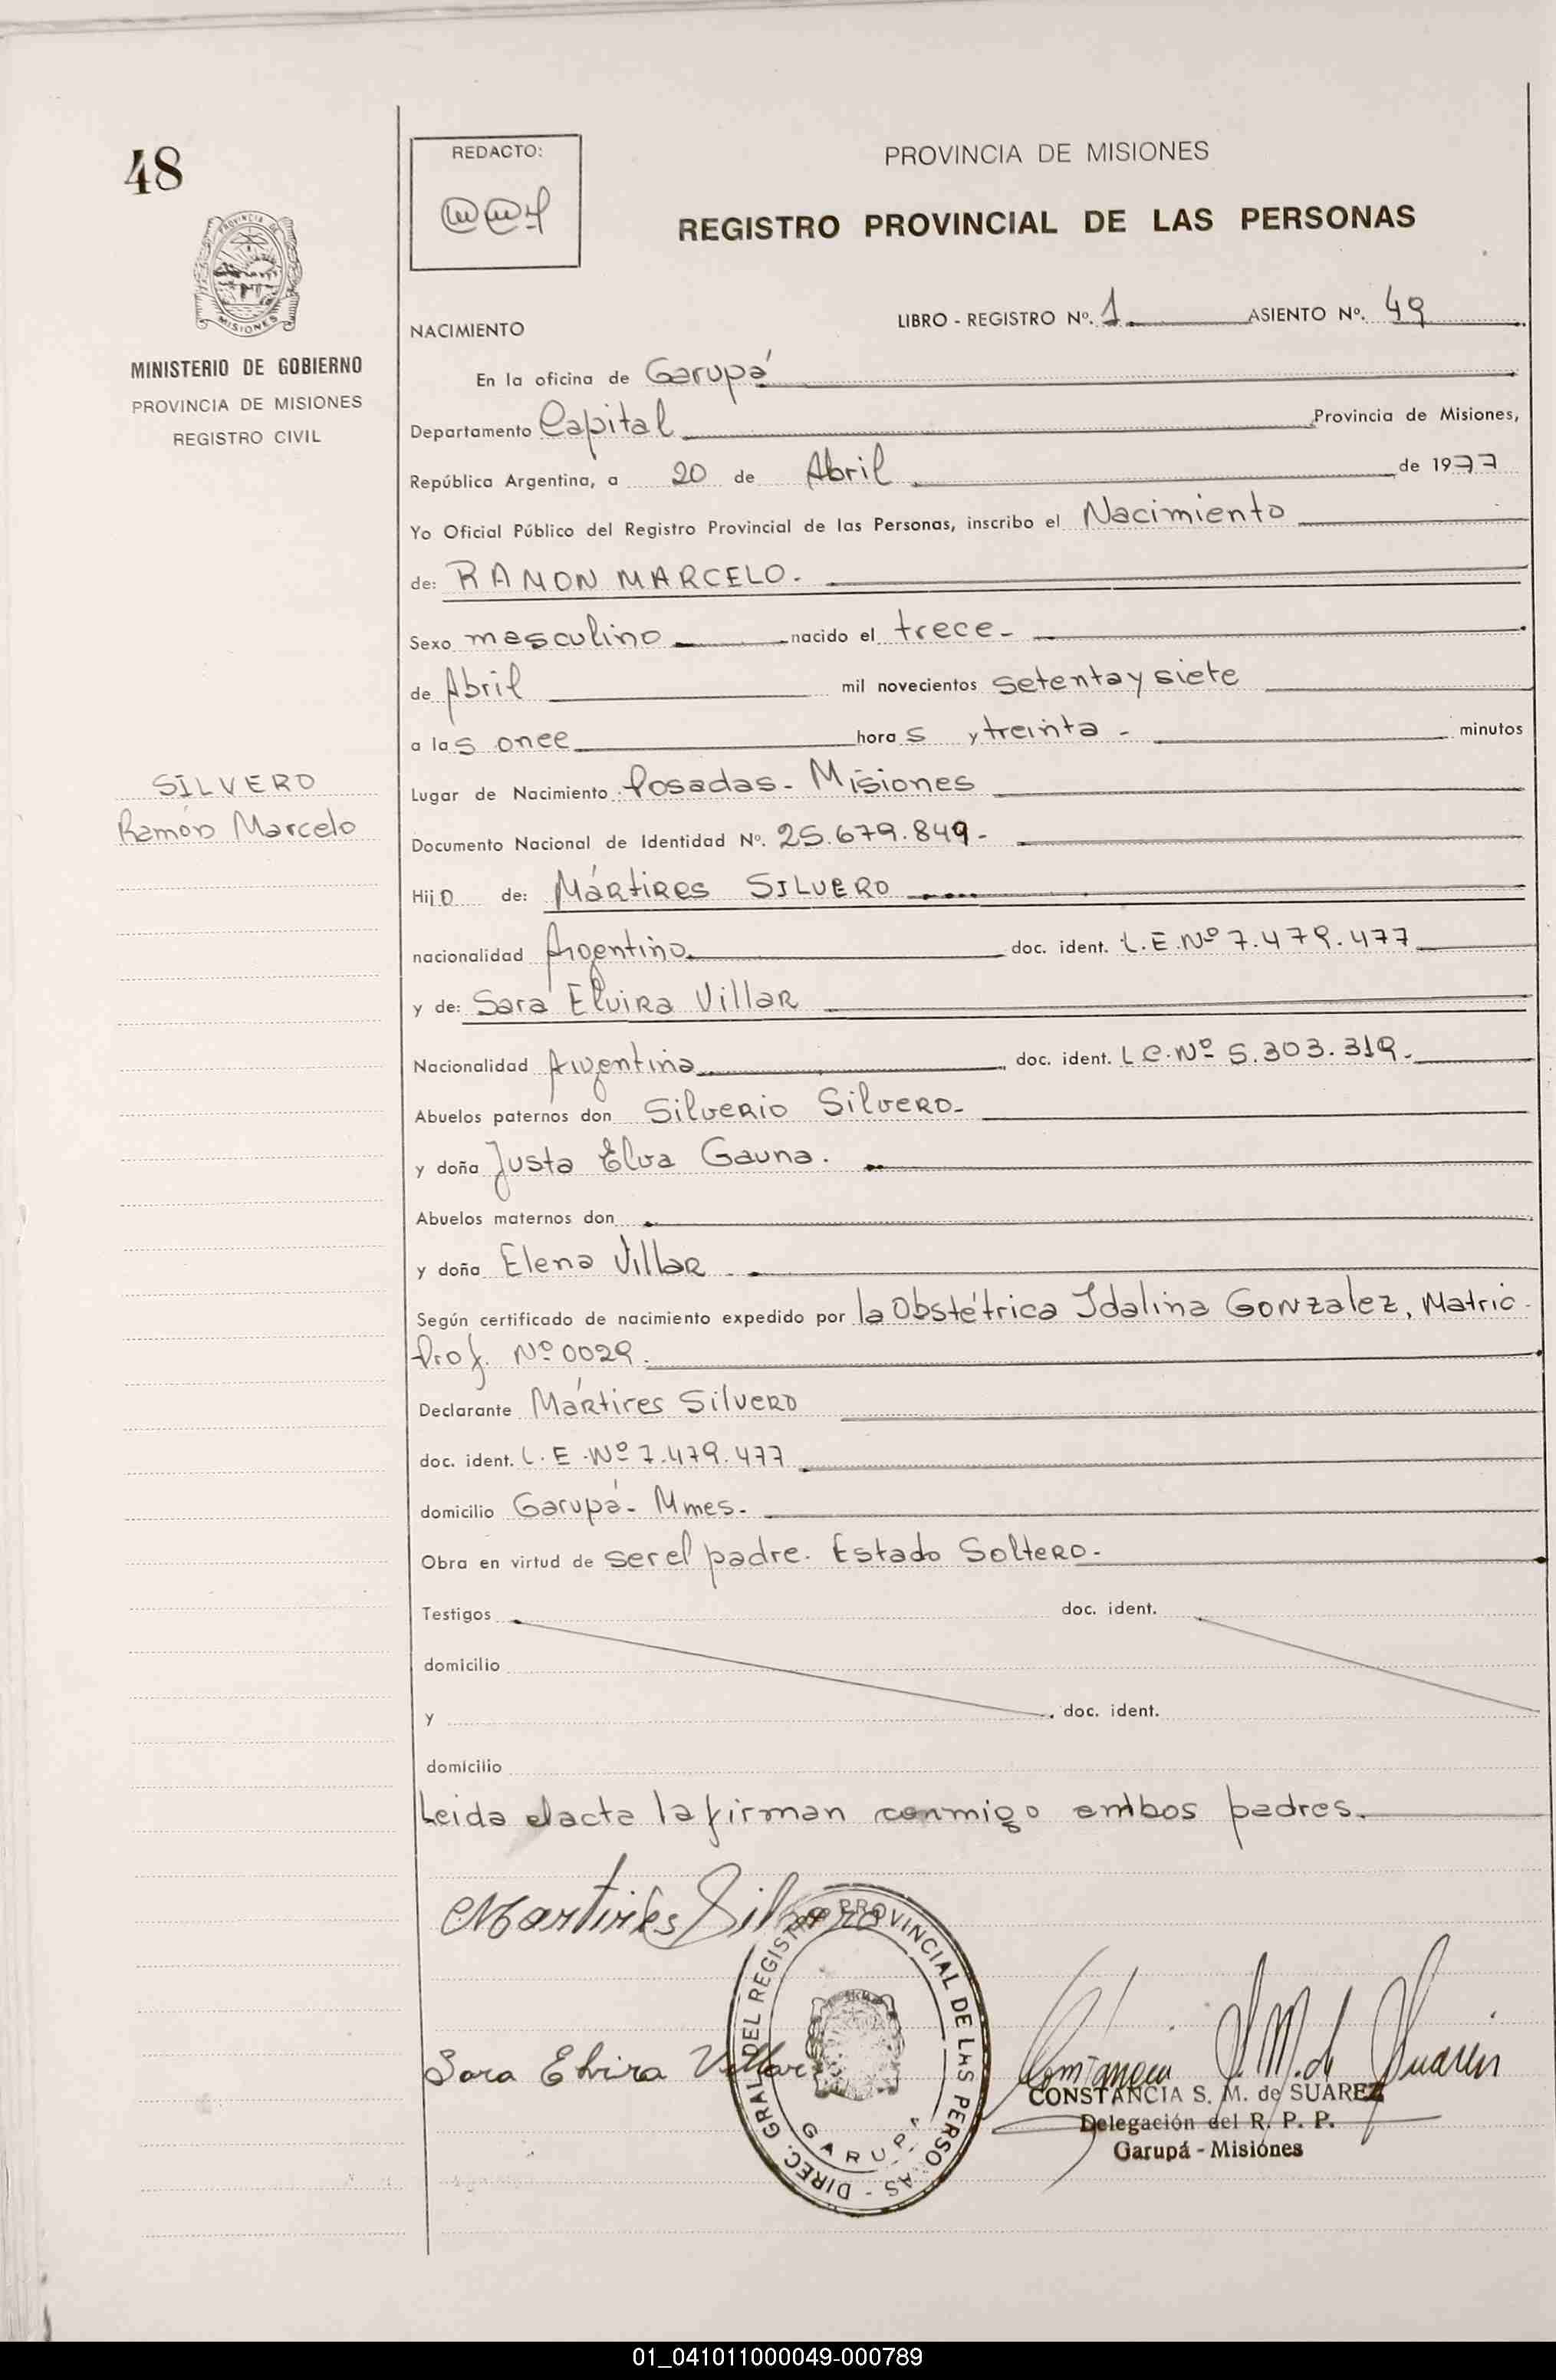 48
PROVINCIA DE
MISIONES
MINISTERIO DE GOBIERNO
PROVINCIA DE MISIONES
REGISTRO CIVIL
SILVERO
Ramón Marcelo
REDACTO:
PROVINCIA DE MISIONES
REGISTRO PROVINCIAL DE LAS PERSONAS
NACIMIENTO LIBRO - REGISTRO Nº. 1 ASIENTO Nº. 49
En la oficina de Garupá
Departamento Capital Provincia de Misiones,
República Argentina, a 20 de Abril de 1977
Yo Oficial Público del Registro Provincial de las Personas, inscribo el Nacimiento
de: RAMON MARCELO.
Sexo masculino nacido el trece-
de Abril mil novecientos setenta y siete
a las once horas y treinta - minutos
Lugar de Nacimiento Posadas - Misiones
Documento Nacional de Identidad Nº. 25.679.849-
Hijo de: Mártires SILVERO
nacionalidad Argentino doc. ident. L.E.Nº 7.479.477
y de: Sara Elvira Villar
Nacionalidad Argentina doc. ident. L.C.Nº 5.303.319.
Abuelos paternos don Silverio Silvero-
y doña Justa Elva Gauna.
Abuelos maternos don
y doña Elena Villar
Según certificado de nacimiento expedido por la Obstétrica Idalina Gonzalez, Matric.
Prof. Nº 0029.
Declarante Mártires Silvero
doc. ident. L.E.Nº 7.479.477
domicilio Garupá- Mnes.
Obra en virtud de ser el padre. Estado Soltero-
Testigos doc. ident.
domicilio
y doc. ident.
domicilio
Leida el acta la firman conmigo ambos padres.
Martires Silvero
DIREC. GRAL DEL REGISTRO PROVINCIAL DE LAS PERSO AS -
GARUPA
Sara Elvira Villar
Constancia S. M. de Suarez
CONSTANCIA S. M. de SUAREZ
Delegación del R. P. P.
Garupá - Misiones
01_041011000049-000789